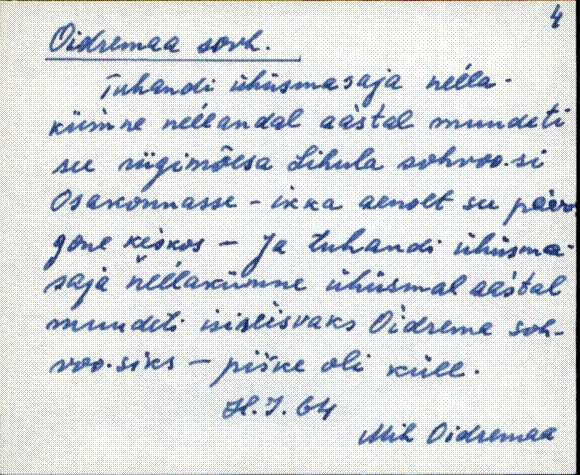 4
Oidremaa sovh.
Tuhandi ühüsmasaja nella-
kümne nellandal aastal muudeti
su riigimõesa Lihula sohvoo.si
Osakonnasse - ikka aenolt su päro-
gone keskos - Ja tuhandi ühüsma-
saja nellakümne ühüsmal aastal
muudeti isiseisvaks Oidrema soh-
voo.siks - piske oli küll.
H.J. 64
Mih Oidremaa